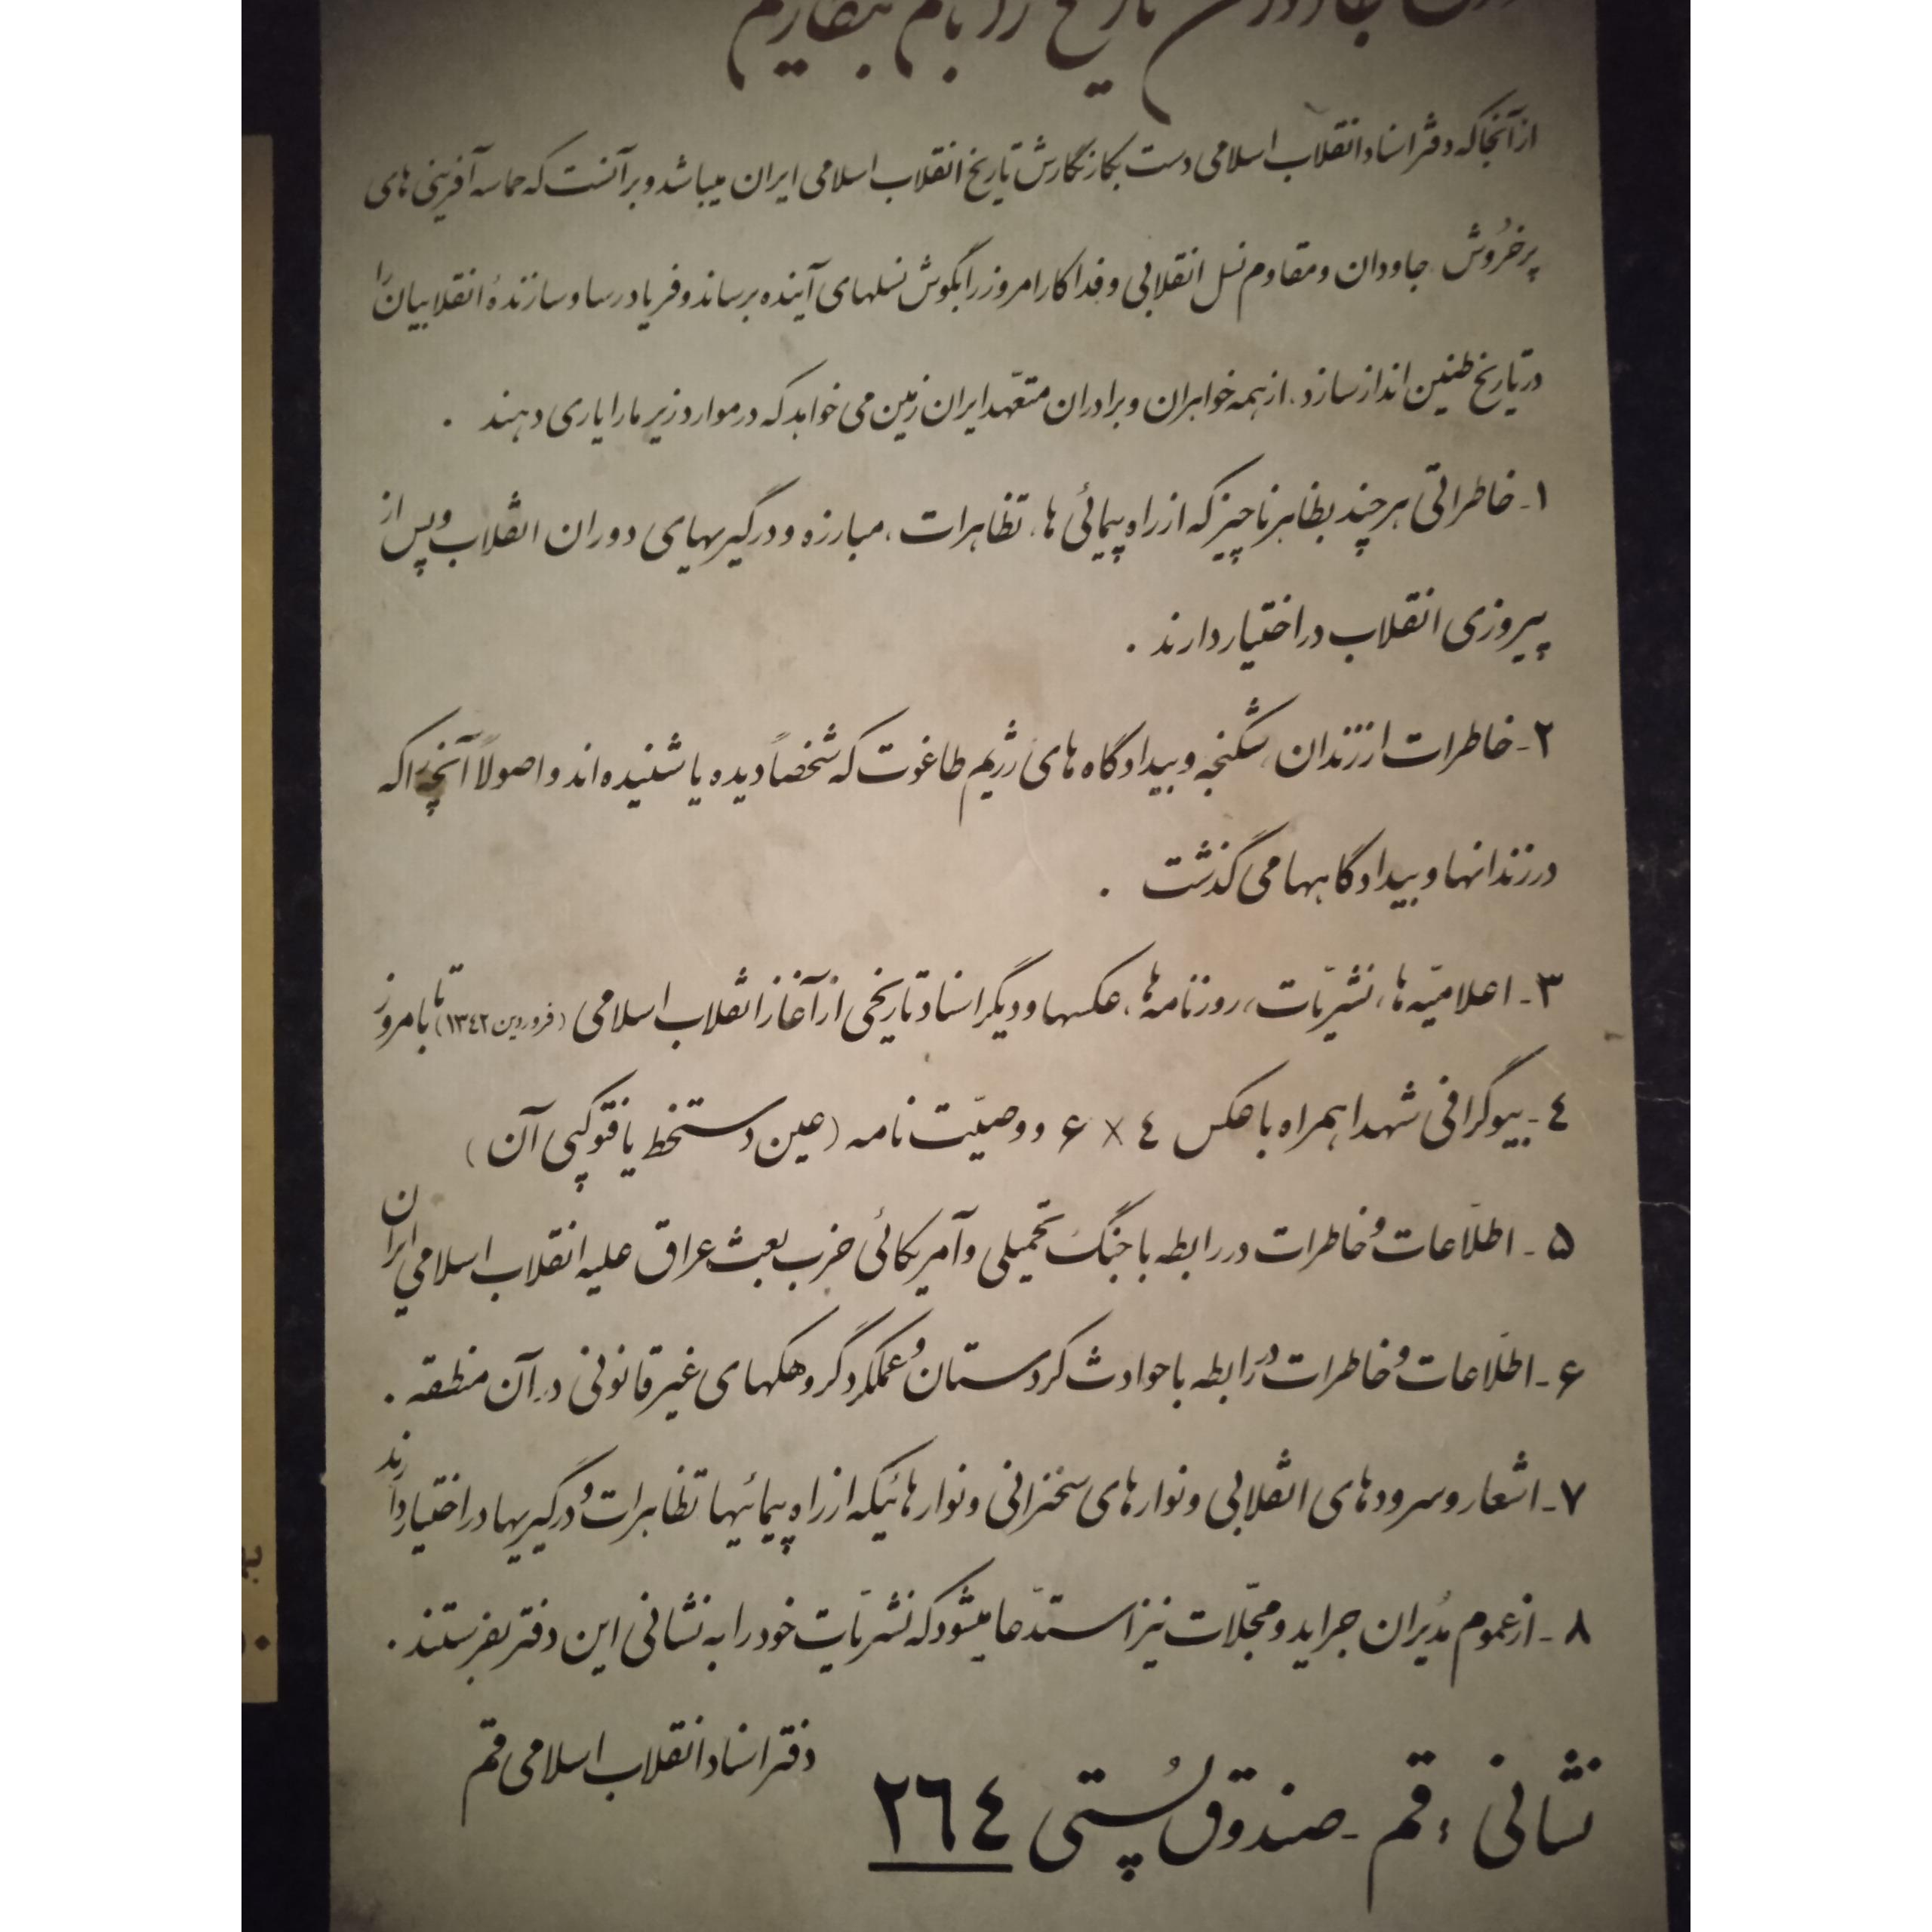 تاریخ را بهم بسپاریم
از آنجا که دفتر اسناد انقلاب اسلامی دست بکار نگارش تاریخ انقلاب اسلامی ایران میباشد و بر آنست که حماسه آفرینی های
پرخروش، جاودان و مقاوم نسل انقلابی و فداکار امروز را بگوش نسلهای آینده برساند و فریاد رسا و سازندهٔ انقلابیان را
در تاریخ طنین انداز سازد، از همه خواهران و برادران متعّهد ایران زمین می خواهد که در موارد زیر ما را یاری دهند .
۱- خاطراتی هر چند بظاهر ناچیز که از راه پیمائی ها، تظاهرات، مبارزه و درگیریهای دوران انقلاب و پس از
پیروزی انقلاب در اختیار دارند .
۲- خاطرات از زندان، شکنجه و بیدادگاه های رژیم طاغوت که شخصاً دیده یا شنیده اند و اصولاً آنچه را که
در زندانها و بیدادگاهها می گذشت .
۳- اعلامیّه ها، نشریّات، روزنامه ها، عکسها و دیگر اسناد تاریخی از آغاز انقلاب اسلامی (فروردین ۱۳٤۲) تا بامروز
٤- بیوگرافی شهدا همراه با عکس ٤ × ۶ و وصیّت نامه (عین دستخط یا فتوکپی آن)
۵- اطلّاعات و خاطرات در رابطه با جنگ تحمیلی و آمریکائی حزب بعث عراق علیه انقلاب اسلامي ایران
۶- اطلّاعات و خاطرات در رابطه با حوادث کردستان و عملکرد گروهکهای غیر قانونی در آن منطقه .
۷- اشعار و سرودهای انقلابی و نوارهای سخنرانی و نوارهائیکه از راه پیمائیها تظاهرات و درگیریها در اختیار دارند
۸- از عموم مُدیران جراید و مجّلات نیز استدّعا میشود که نشریّات خود را به نشانی این دفتر بفرستند .
دفتر اسناد انقلاب اسلامی قم
نشانی : قم - صندوق پُستی ۲٦٤